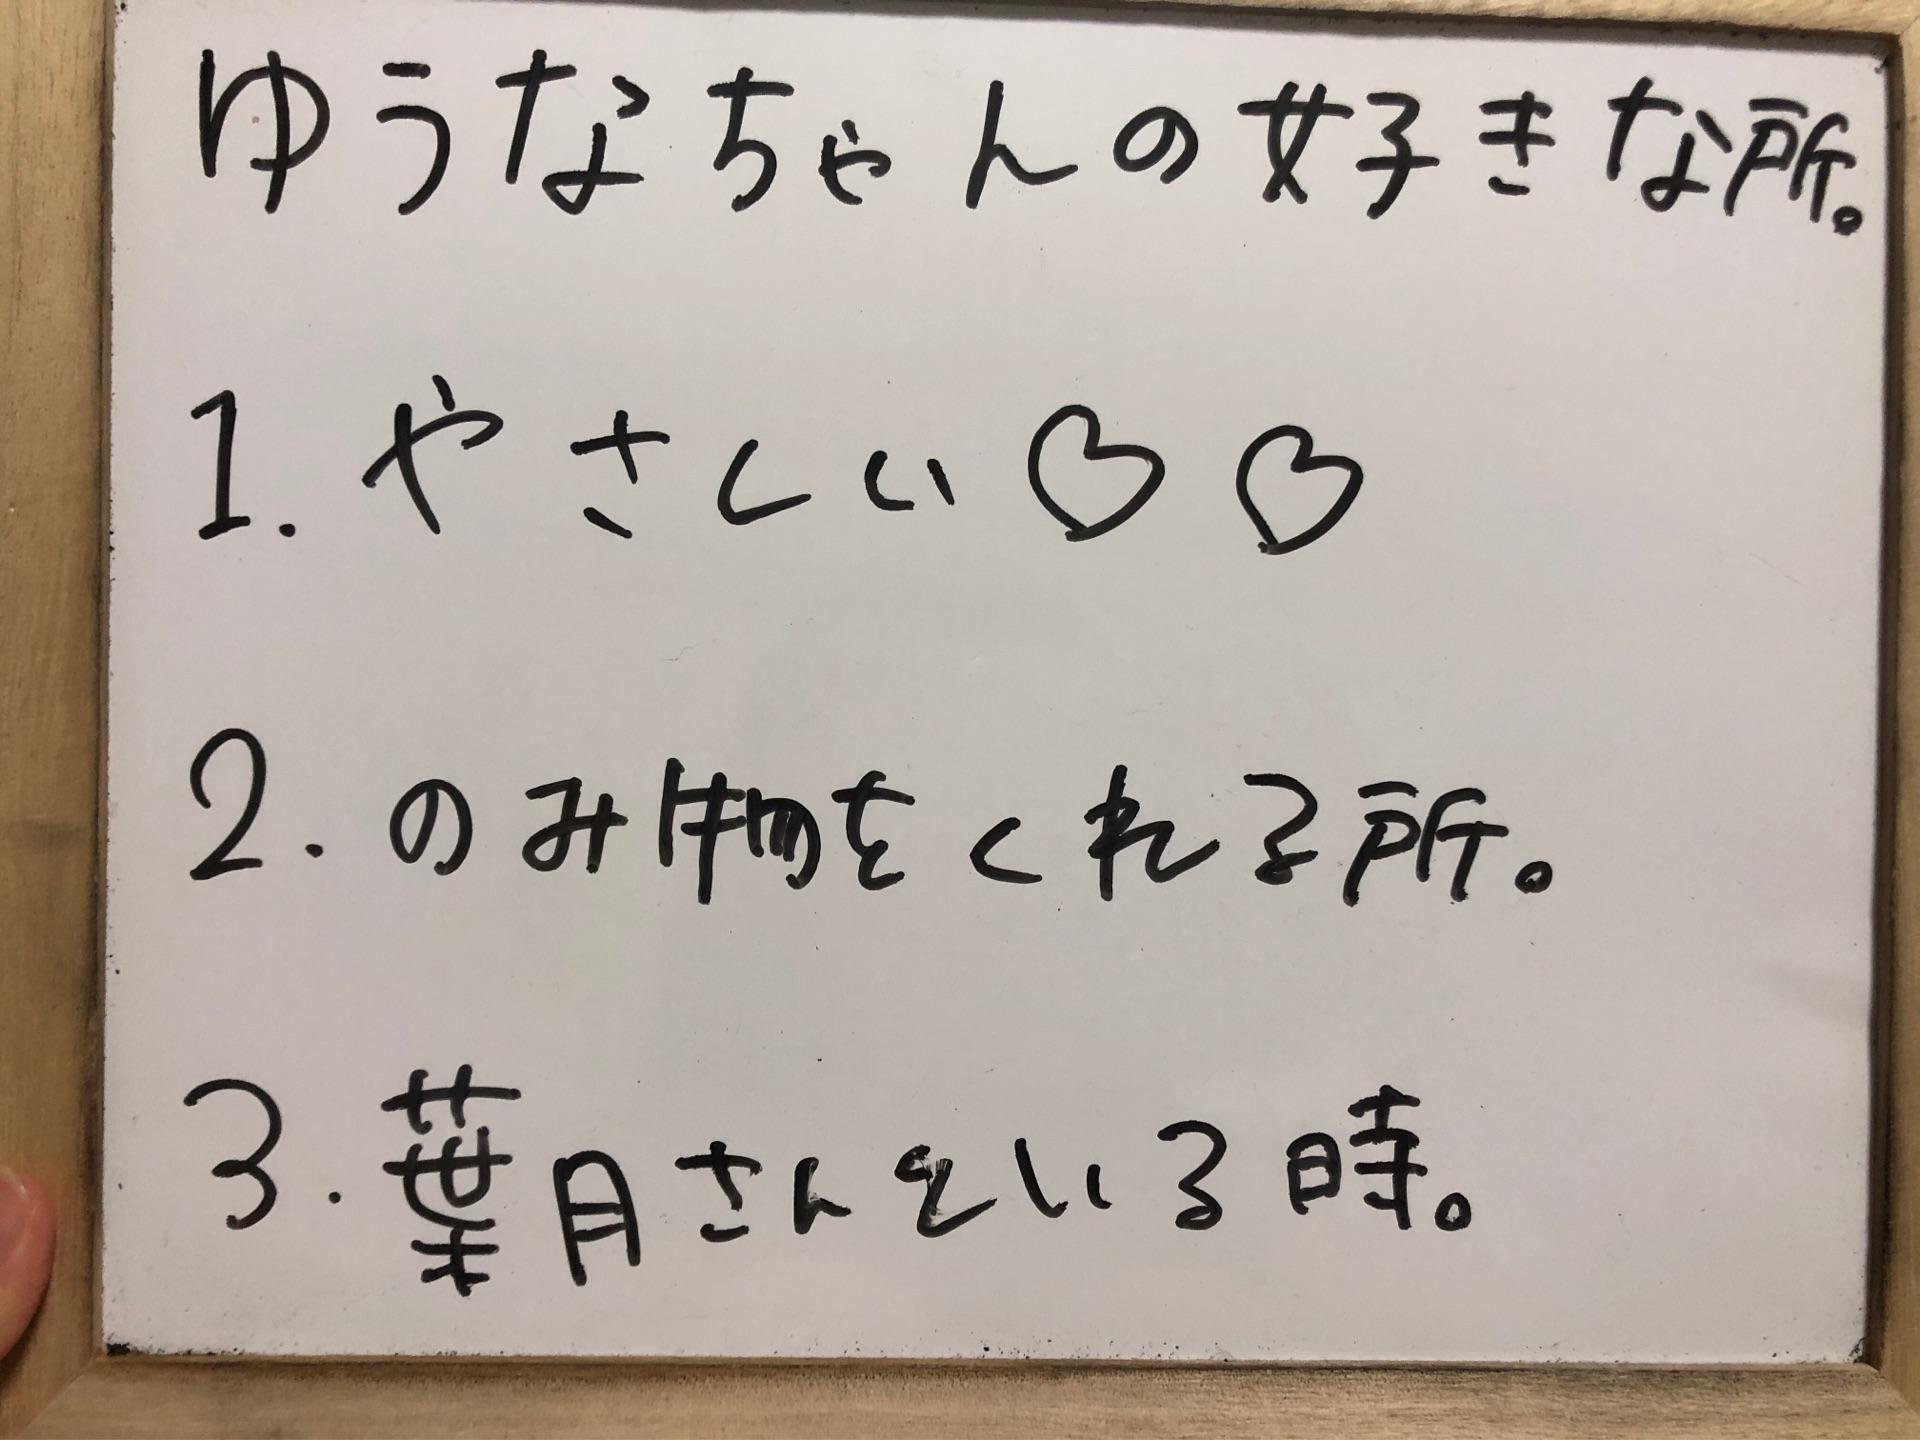 ゆうなちゃんの好きな所。
1.やさしい♡♡
2.のみ物をくれる所。
3.葉月さんといる時。